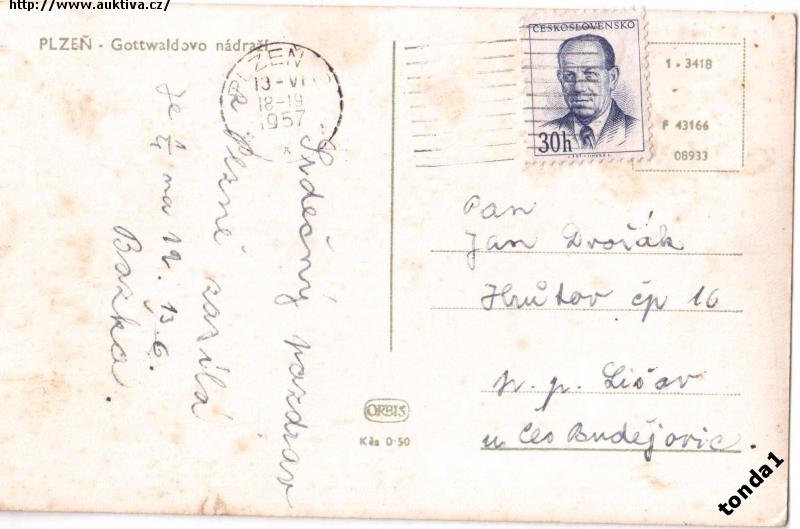 http://www.auktiva.cz/
PLZEŇ - Gottwaldovo nádraží
PLZEŇ
13-VI
18-19
1957
ČESKOSLOVENSKO
30h
1 - 3418
F 43166
08933
Srdečný pozdrav
z Plzně zasílá
Bozka.
13.6.
Pan
Jan Dvořák
Hrůtov čp 16
p. p. Lišav
u Čes Budějovic.
ORBIS
Kčs 0·50
tonda1